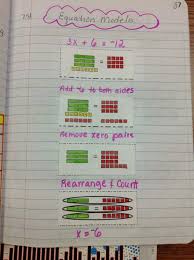 Equation Models
3x + 6 = -12
Add -6 to both sides
Remove zero pairs
Rearrange & Count
x = -6